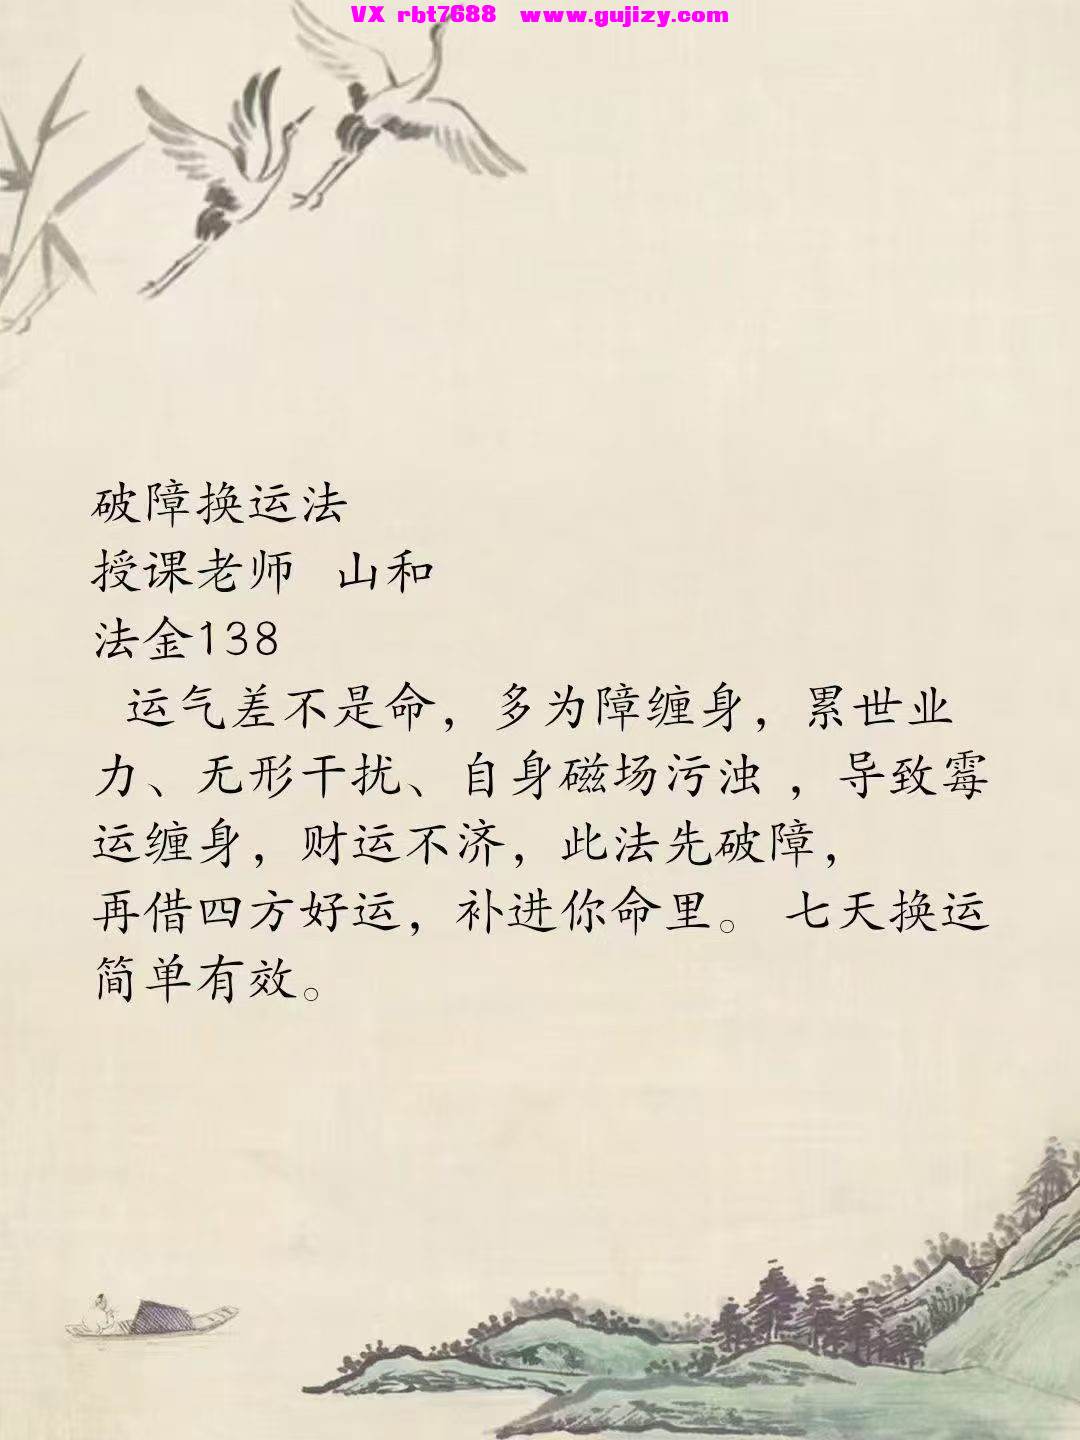 VX rbt7688 www.gujizy.com
破障换运法
授课老师 山和
法金138
运气差不是命，多为障缠身，累世业
力、无形干扰、自身磁场污浊 ，导致霉
运缠身，财运不济，此法先破障，
再借四方好运，补进你命里。 七天换运
简单有效。